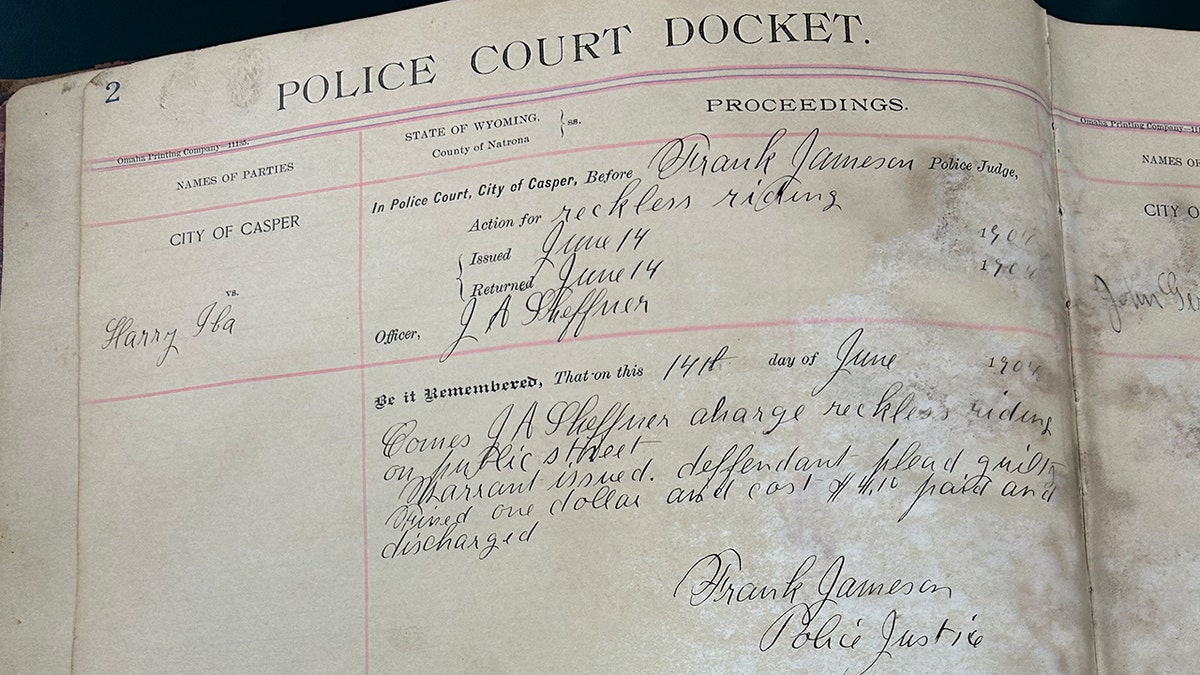 2
POLICE COURT DOCKET.
Omaha Printing Company—11185.
NAMES OF PARTIES
CITY OF CASPER
vs.
Harry Iba
STATE OF WYOMING,
County of Natrona
} ss.
PROCEEDINGS.
In Police Court, City of Casper, Before Frank Jameson Police Judge,
Action for reckless riding
Issued June 14 1904
Returned June 14 1904
Officer, J A Sheffner
Be it Remembered, That on this 14th day of June 1904
Comes J A Sheffner charge reckless riding
on public street
Warrant issued. deffendant plead guilty
Fined one dollar and cost $4.10 paid and
discharged
Frank Jameson
Police Justice
Omaha Printing Company—11
NAMES OF
CITY O
John